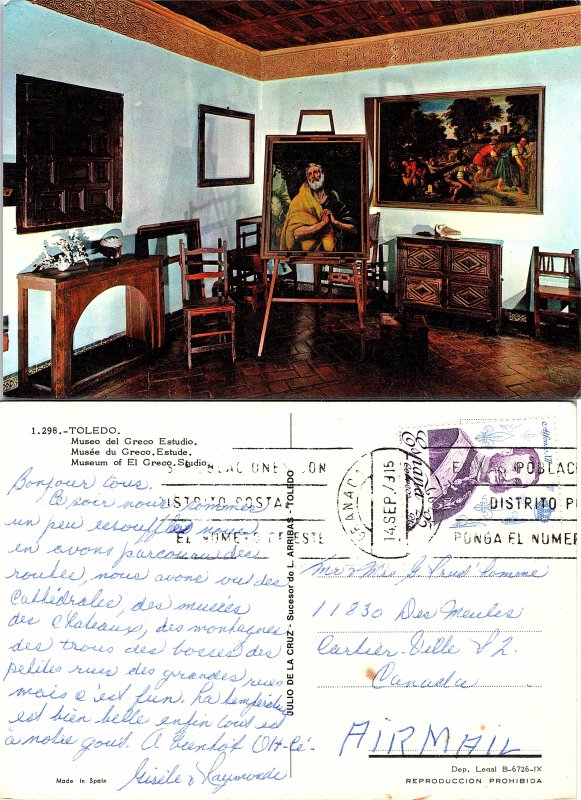 1.298.-TOLEDO.
Museo del Greco Estudio.
Musée du Greco. Estude.
Museum of El Greco. Studio.
Bonjour tous.
Ce soir nous sommes
un peu essoufflés nous
en avons parcouru des
routes, nous avons vu des
Cathédrales, des musées
des Chateaux, des montagnes
des trous des bosses des
petites rues des grandes rues
mais c'est fun. La température
est bien belle enfin tout est
à notre goût. A bientôt OH-Lé-
Gisèle & Raymonde
Made in Spain
JULIO DE LA CRUZ - Sucesor de L. ARRIBAS - TOLEDO
POBLACIONES CON
DISTRITO POSTAL
EL NUMERO CELESTE
14 SEP. 15
España
correos
EN LAS POBLACI
DISTRITO P
PONGA EL NUMER
Mr & Mrs G Prud'homme
11830 Des Meules
Cartier-Ville P2.
Canada
AIRMAIL
Dep. Legal B-6726-IX
REPRODUCCION PROHIBIDA